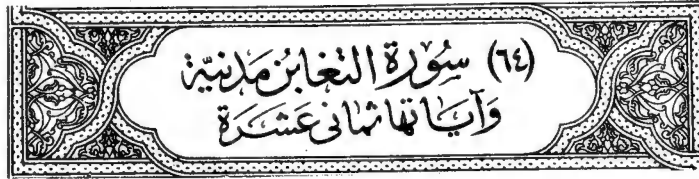 (٦٤) سُوْرَة التغَابُن مَدَنيَّة
وَآيَاتهَا ثمَانى عَشَرَة